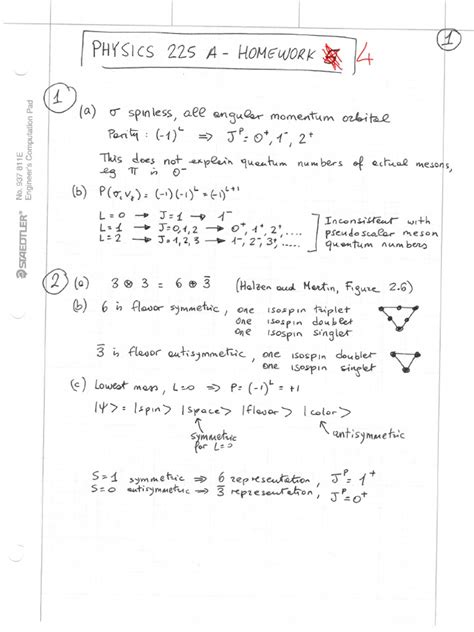 1
PHYSICS 225 A - HOMEWORK 4
1
(a) σ spinless, all angular momentum orbital
Parity : (-1)^L ⇒ J^P = 0^+, 1^-, 2^+
This does not explain quantum numbers of actual mesons,
eg π is 0^-
(b) P(σ, ν_p) = (-1)(-1)^L = (-1)^{L+1}
L = 0 → J = 1 → 1^-
L = 1 → J = 0, 1, 2 → 0^+, 1^+, 2^+, ....
L = 2 → J = 1, 2, 3 → 1^-, 2^-, 3^-, ...
Inconsistent with
pseudoscalar meson
quantum numbers
2 (a) 3 ⊗ 3 = 6 ⊕ 3̄ (Halzen and Martin, Figure 2.6)
(b) 6 is flavor symmetric, one isospin triplet
one isospin doublet
one isospin singlet
3̄ is flavor antisymmetric, one isospin doublet
one isospin singlet
(c) Lowest mass, L=0 ⇒ P = (-1)^L = +1
|ψ> = |spin> |space> |flavor> |color>
symmetric
for L=0
antisymmetric
S = 1 symmetric ⇒ 6 representation, J^P = 1^+
S = 0 antisymmetric ⇒ 3̄ representation, J^P = 0^+
STAEDTLER® No. 937 811E
Engineer's Computation Pad